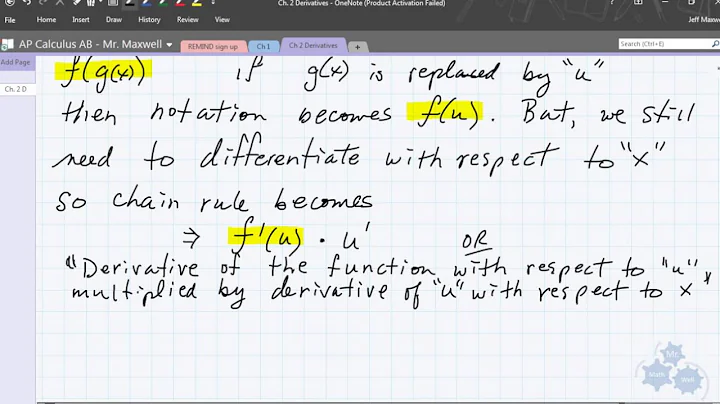 Ch. 2 Derivatives - OneNote (Product Activation Failed)
Jeff Maxwe
File Home Insert Draw History Review View
AP Calculus AB - Mr. Maxwell REMIND sign up Ch 1 Ch. 2 Derivatives +
Search (Ctrl+E)
Add Page
Ch. 2 D
f(g(x)) if g(x) is replaced by "u"
then notation becomes f(u). But, we still
need to differentiate with respect to "x"
so chain rule becomes
⇒ f'(u) · u' OR
"Derivative of the function with respect to "u",
multiplied by derivative of "u" with respect to x"
Mr.
Math
Well